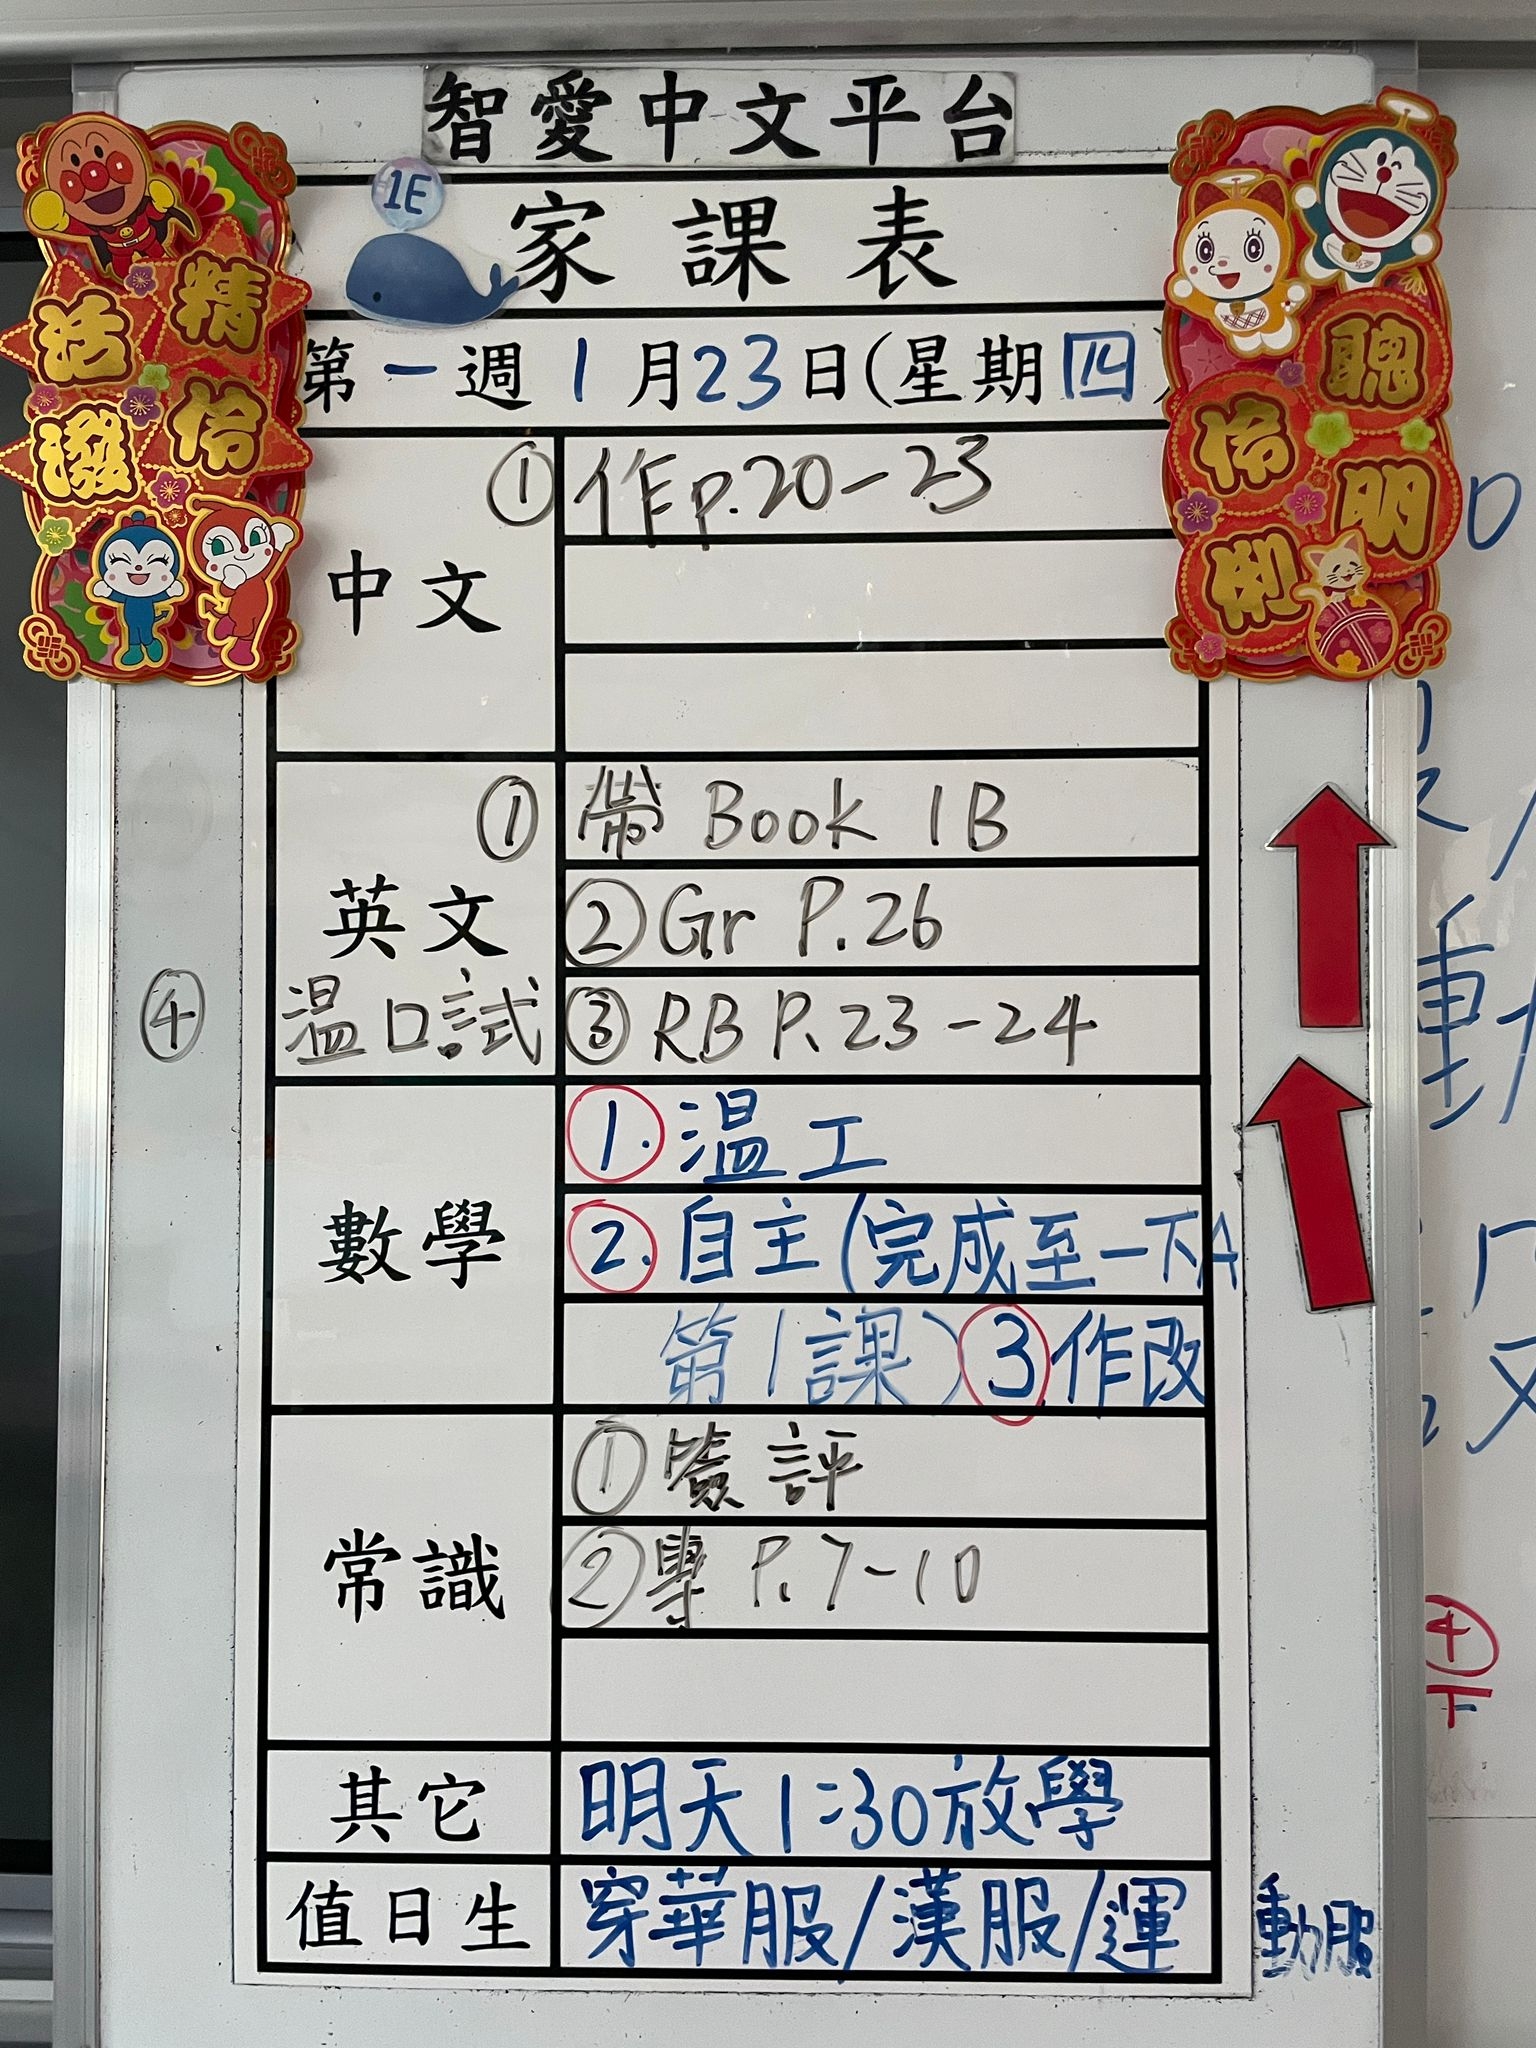 智愛中文平台
1E
家課表
第一週 1月23日(星期四)
精伶
活潑
聰明
伶俐
中文
① 作p.20-23
英文
① 帶 Book 1B
② Gr P.26
③ RB P.23-24
④ 溫口試
數學
1. 溫工
2. 自主(完成至一下A
第1課) 3 作改
常識
① 簽評
② 專 P.7-10
其它
明天1:30放學
值日生
穿華服/漢服/運動服